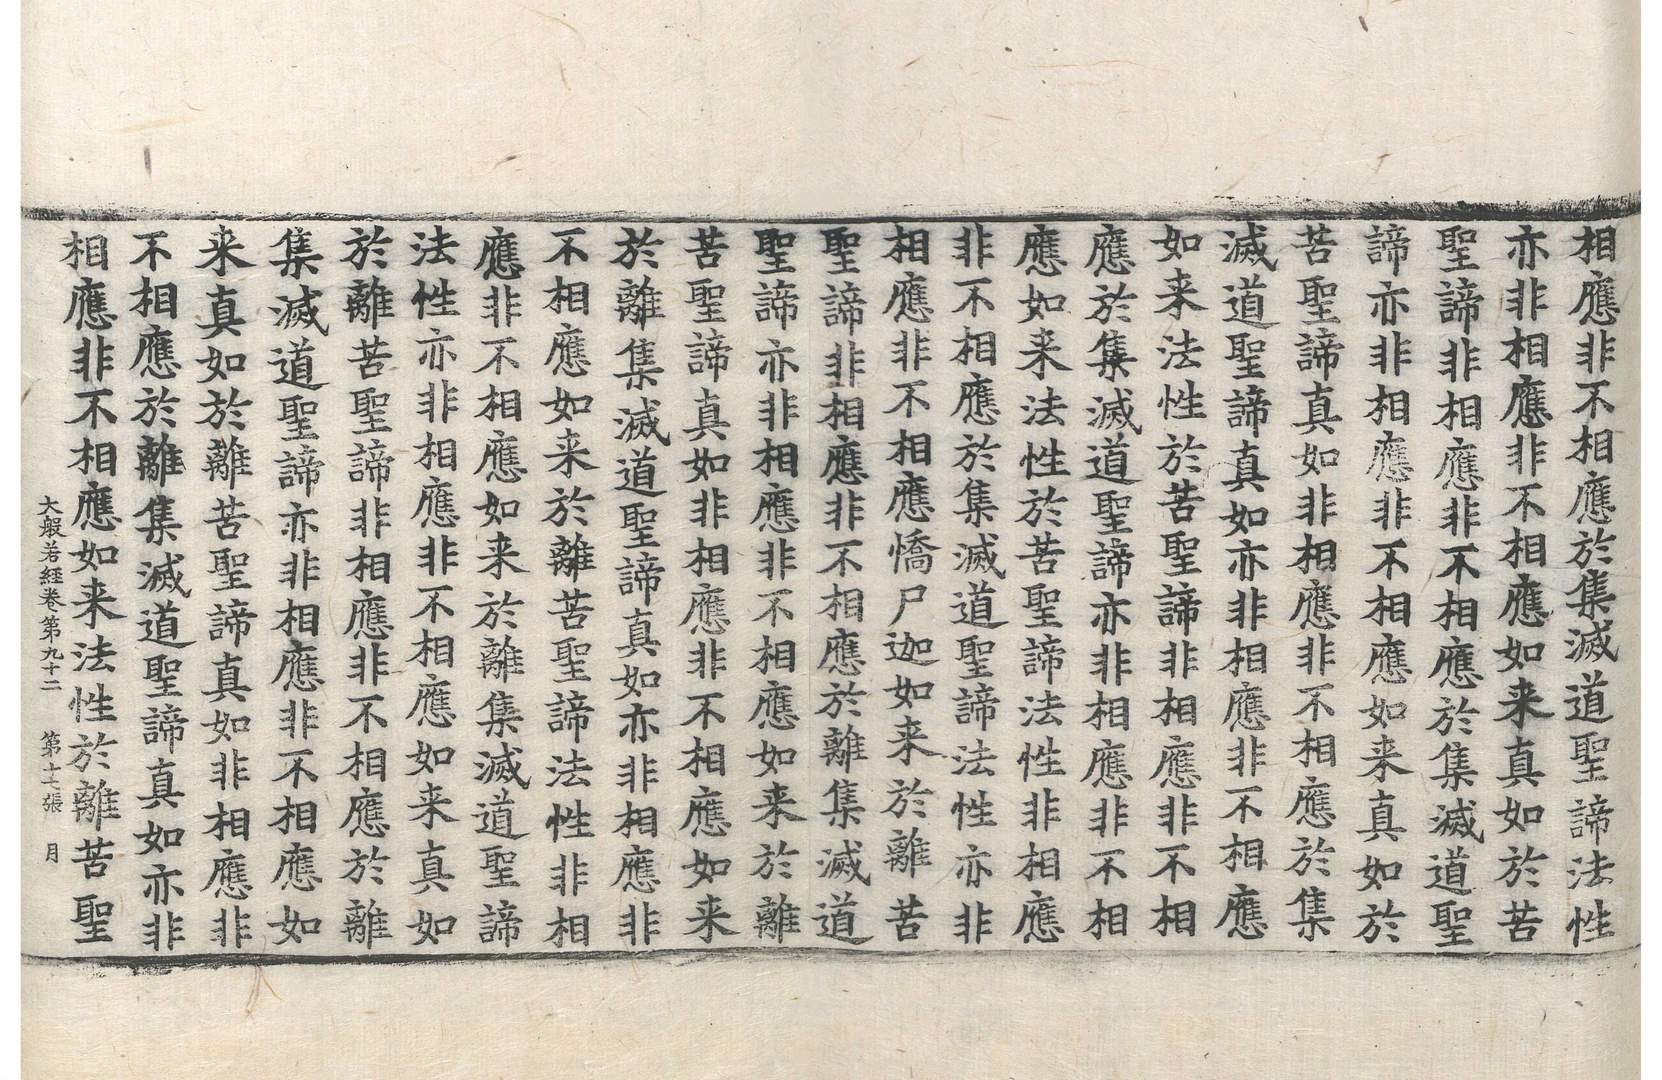 相應非不相應於集滅道聖諦法性
亦非相應非不相應如来真如於苦
聖諦非相應非不相應於集滅道聖
諦亦非相應非不相應如来真如於
苦聖諦真如非相應非不相應於集
滅道聖諦真如亦非相應非不相應
如来法性於苦聖諦非相應非不相
應於集滅道聖諦亦非相應非不相
應如来法性於苦聖諦法性非相應
非不相應於集滅道聖諦法性亦非
相應非不相應憍尸迦如来於離苦
聖諦非相應非不相應於離集滅道
聖諦亦非相應非不相應如来於離
苦聖諦真如非相應非不相應如来
於離集滅道聖諦真如亦非相應非
不相應如来於離苦聖諦法性非相
應非不相應如来於離集滅道聖諦
法性亦非相應非不相應如来真如
於離苦聖諦非相應非不相應於離
集滅道聖諦亦非相應非不相應如
来真如於離苦聖諦真如非相應非
不相應於離集滅道聖諦真如亦非
相應非不相應如来法性於離苦聖
大般若經卷第九十二 第十七張 月